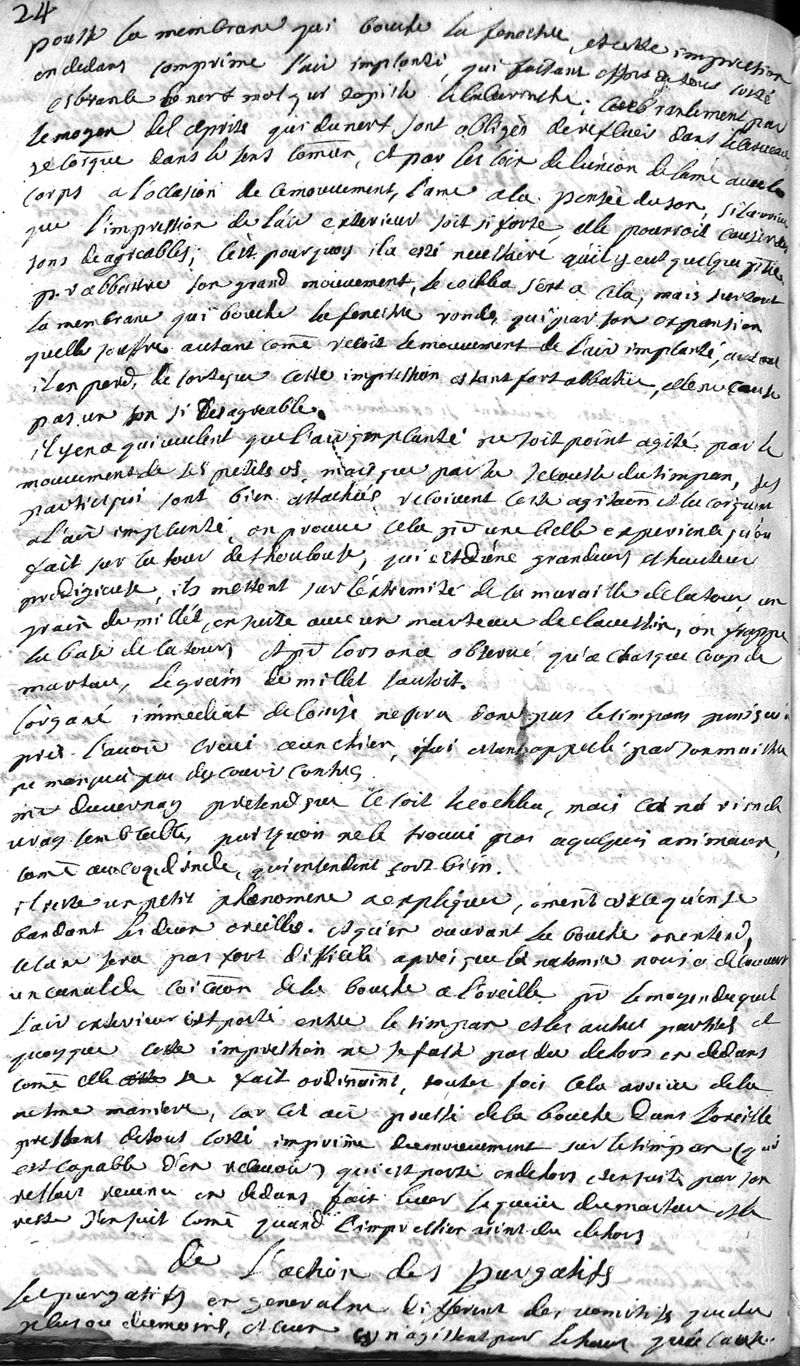 24
pousse la membrane qui bouche la fenestre, et cette impression
en dedans comprime l'air implanté, qui faisant effort de tous costé
esbranle le nerf mol qui tapisse le labirinthe; cet esbranlement par
le moyen des esprits qui du nerf sont obligés de refluer dans le cerveau
se coique dans le sens comun, et par les loix de l'union de l'ame avec le
corps a l'occasion de ce mouvement, l'ame a la pensée du son, si la
que l'impression de l'air exterieur soit si forte, elle pourroit causer des
sons desagreables; c'est pourquoy il a esté necessaire qu'il y eut quelque
pr abbattre son grand mouvement, le cochlea sert a cela, mais surtout
la membrane qui bouche la fenestre ronde, qui par son expansion
quelle souffre autant come recoit le mouvement de l'air implanté, autant
il en perd, de sorte que cette impression estant fort abbatue, elle ne cause
pas un son si desagreable.
il y en a qui veulent que l'air implanté ne soit point agité par le
mouvement de ses petits os, mais que par la secousse du timpan, ses
parties qui sont bien attachées recoivent cette agitaon et la coiquent
a l'air implanté, on prouve cela pr une belle experience qu'on
fait sur la tour de thoulouse, qui est d'une grandeur et hauteur
prodigieuse, ils mettent sur l'extremité de la muraille de la tour un
grain de millet, ensuite avec un marteau de clavessin, on frappe
la base de la tour, et pr lors on a observé qu'a chasque coup de
marteau, le grain de millet sautoit.
l'organe immediat de l'ouye ne sera donc pas le timpan puisqu'
pres l'avoir crevé a un chien, qui estant appellé par son maistre
ne manqua pas de courir contre
mr duvernay pretend que ce soit le cochlea, mais cela n'a rien de
vray semblable, puisqu'on ne le trouve pas a quelques animaux,
come au coq d'inde, qui entendent fort bien.
il reste un petit phœnomene a expliquer, coment est ce qu'en se
bandant les deux oreilles, et qu'en ouvrant la bouche on entend,
cela ne sera pas fort difficile apres que l'anatomie nous a decouvert
un canal de coicaon de la bouche a l'oreille pr le moyen duquel
l'air exterieur est porté entre le timpan et les autres parties et
quoyque cette impression ne se fasse pas du dehors en dedans
come elle se fait ordinairemt, toutes fois cela arrive de la
mesme maniere, car cet air poussé de la bouche dans l'oreille
pressant de tous costé imprime du mouvement sur le timpan (qui
est capable d'en recevoir) qui est porté en dehors et ensuite par son
ressort revenu en dedans fait lever la queue du marteau et le
reste s'ensuit come quand l'impression vient du dehors
de L'action des Purgatifs
Les purgatifs en general ne different des vomitifs que du
plus ou du moins, et ceux cy n'agissent par le haut qu'a cause